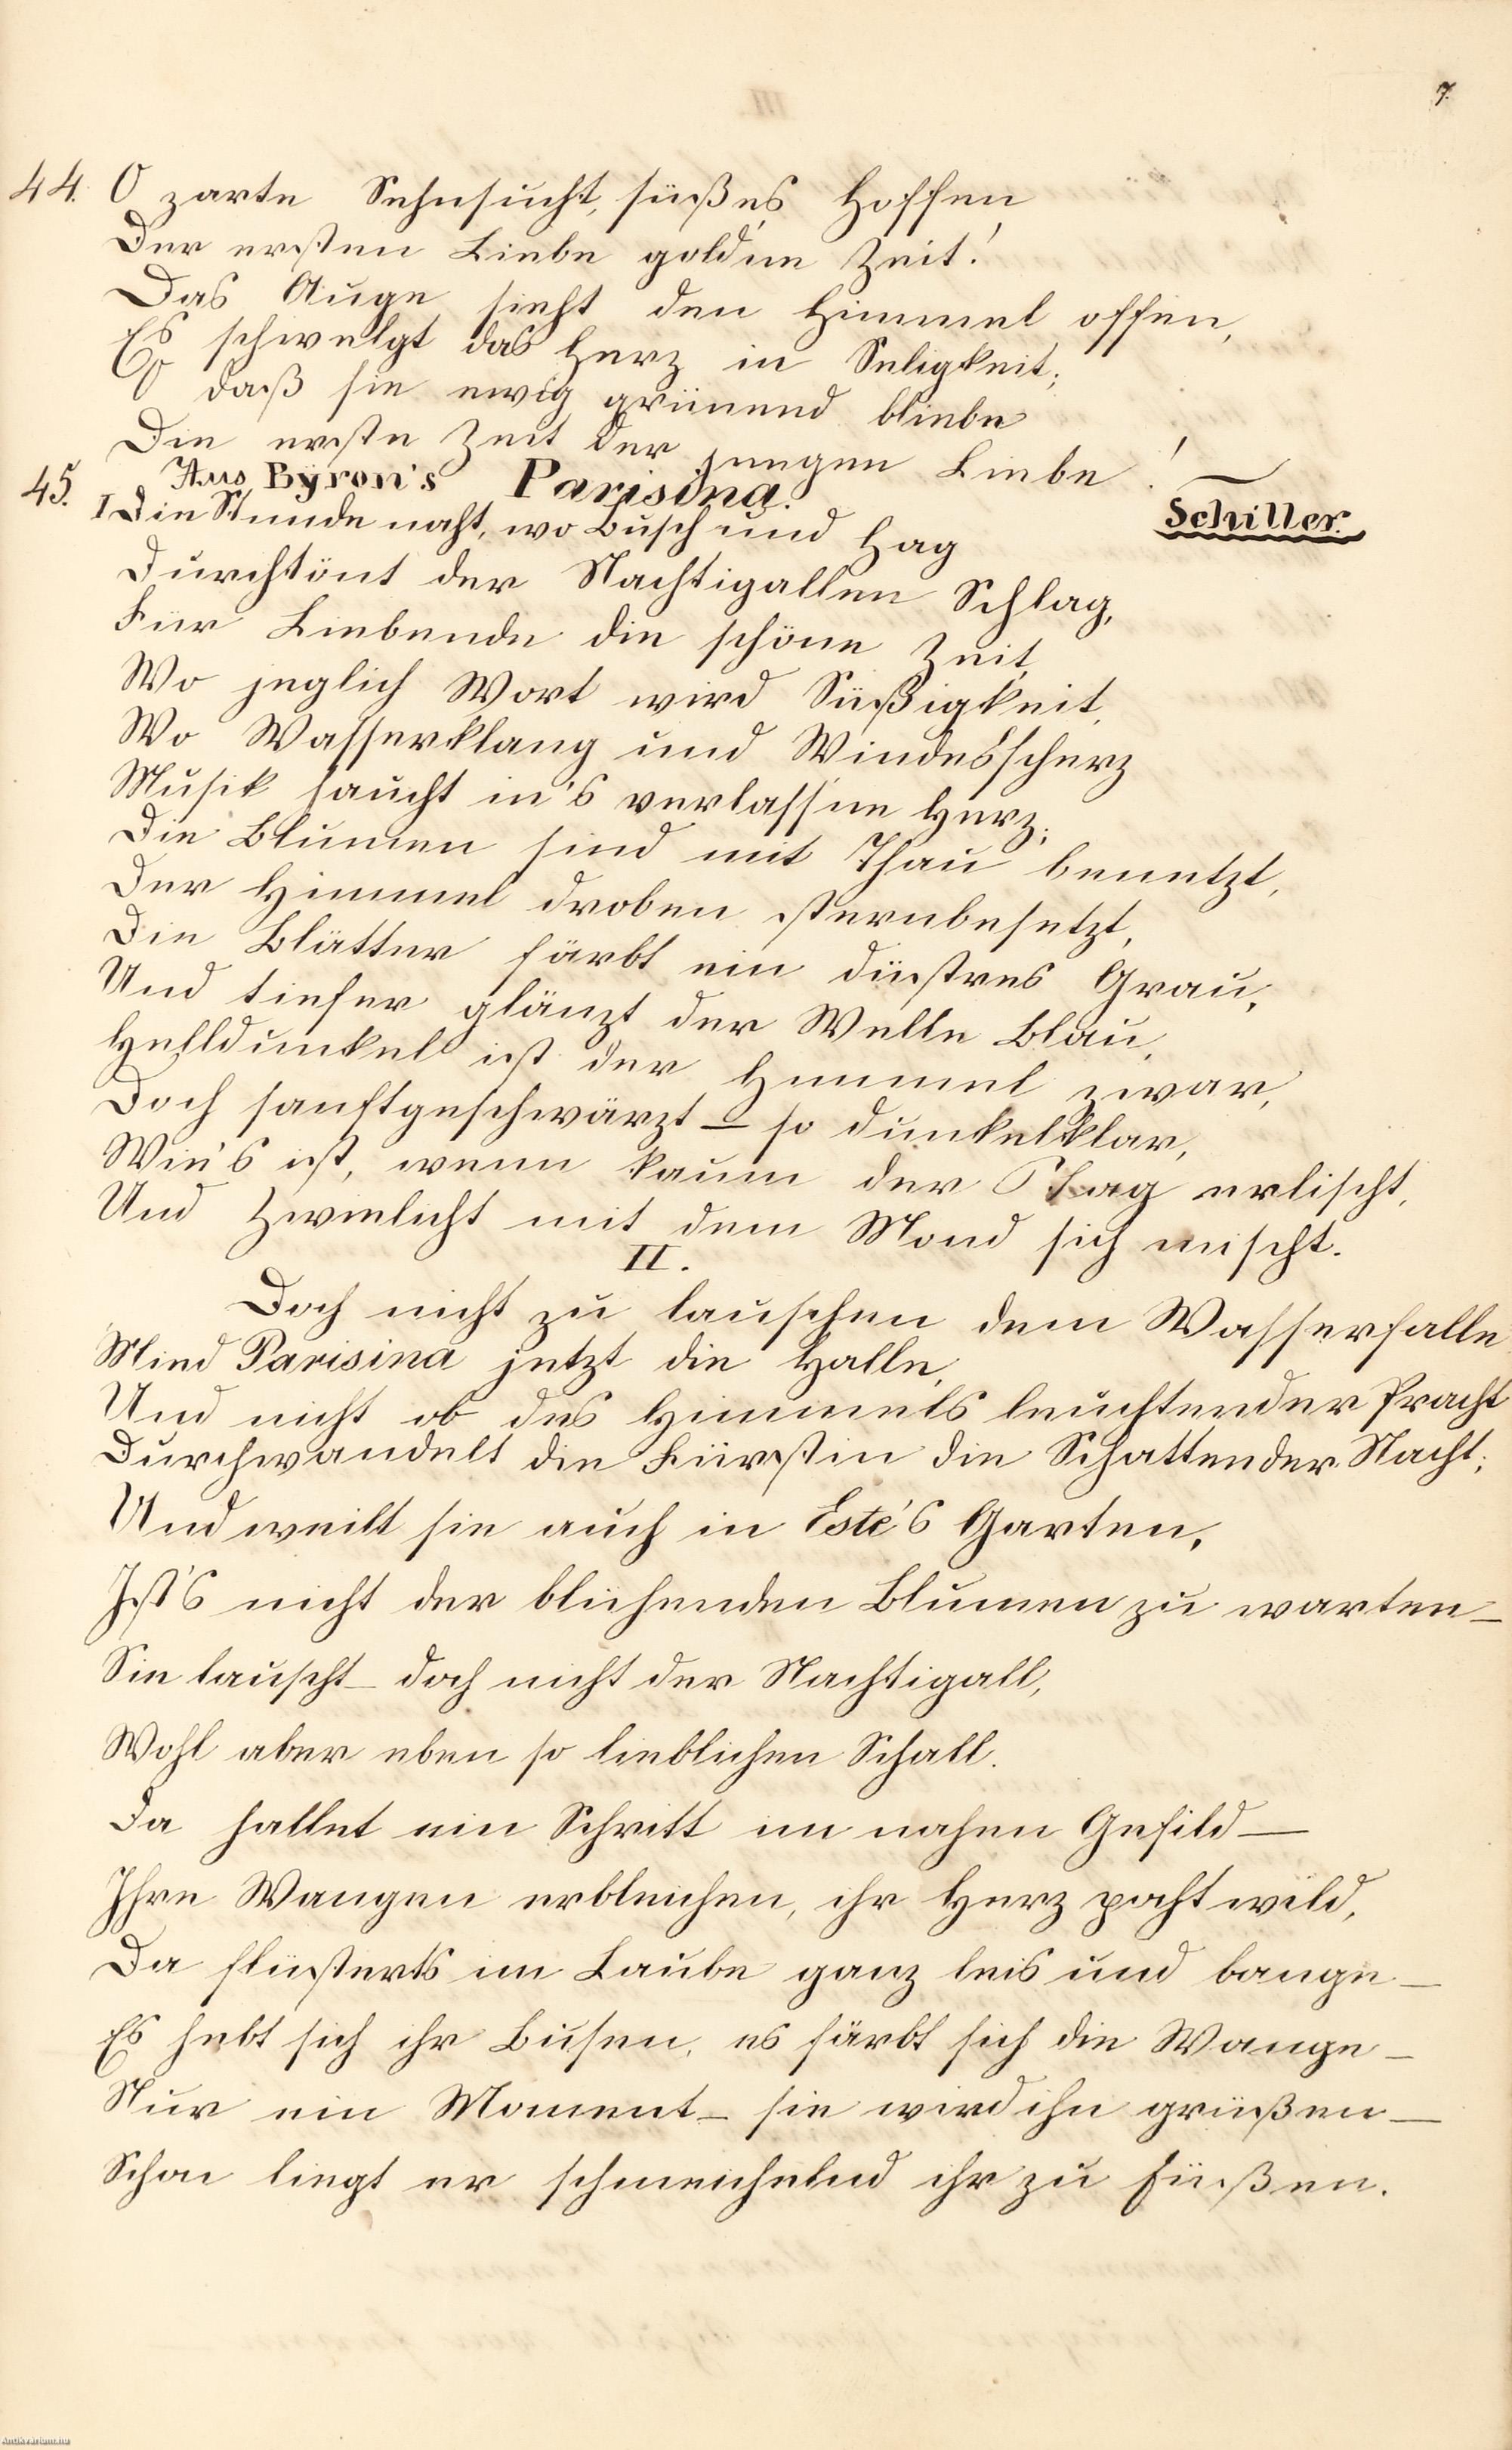 7.
44. O zarte Sehnsucht, süßes Hoffen,
Der ersten Liebe gold'ne Zeit!
Das Auge sieht den Himmel offen,
Es schwelgt das Herz in Seligkeit;
O daß sie ewig grünend bliebe
Die erste Zeit der jungen Liebe!
Schiller.
45. Aus Byron's Parisina.
I Die Stunde naht, wo Busch und Hag
Durchtönt der Nachtigallen Schlag,
Für Liebende die schöne Zeit,
Wo jeglich Wort wird Süßigkeit,
Wo Wasserklang und Windesscherz
Musik haucht in's verlass'ne Herz;
Die Blumen sind mit Thau benetzt,
Der Himmel droben sternbesetzt,
Die Blätter färbt ein düstres Grau,
Und tiefer glänzt der Welle Blau,
Helldunkel ist der Himmel zwar,
Doch sanftgeschwärzt – so dunkelklar,
Wie's ist, wenn kaum der Tag erlischt,
Und Zwielicht mit dem Mond sich mischt.
II.
Doch nicht zu lauschen dem Wasserfalle
Mied Parisina jetzt die Halle,
Und nicht ob des Himmels leuchtender Pracht
Durchwandelt die Fürstin die Schatten der Nacht;
Und weilt sie auch in Este's Garten,
Ist's nicht der blühenden Blumen zu warten –
Sie lauscht – doch nicht der Nachtigall,
Wohl aber eben so lieblichen Schall.
Da hallet ein Schritt im nahen Gefild –
Ihre Wangen erbleichen, ihr Herz pocht wild,
Da flüsterts im Laube ganz leis und bange –
Es hebt sich ihr Busen, es färbt sich die Wange –
Nur ein Moment – sie wird ihn grüßen –
Schon liegt er schmeichelnd ihr zu Füßen.
Antikvarium.hu